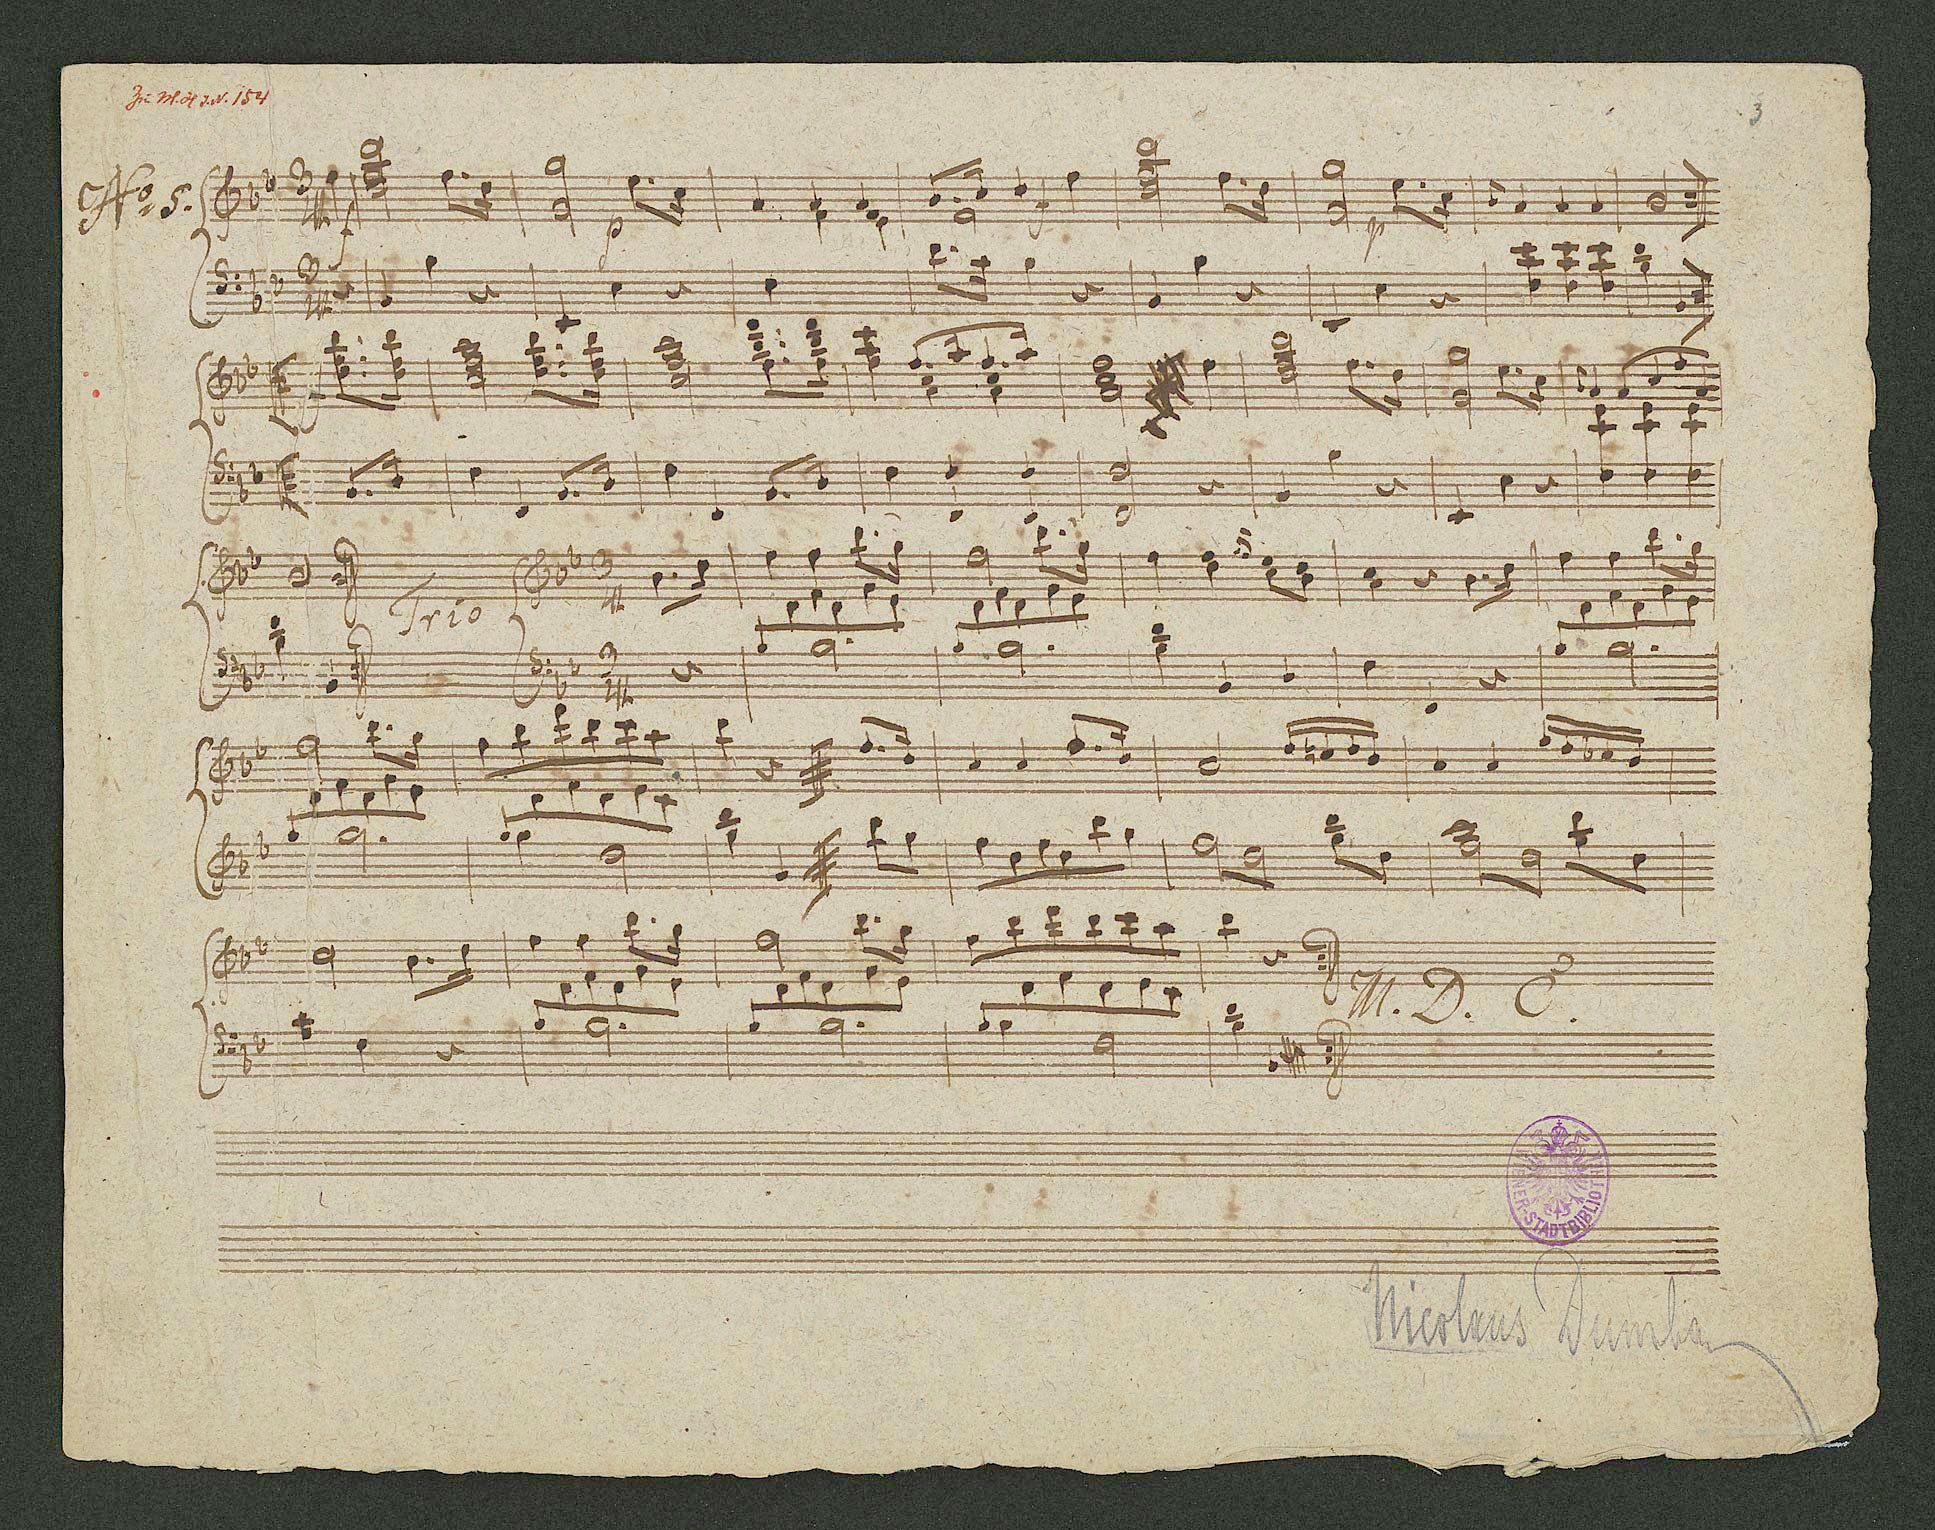 Zu M.H.I.N. 154
3
No 5.
f p f p
Trio
M. D. C.
WIENER-STADTBIBLIOTHEK
Nicolaus Dumba